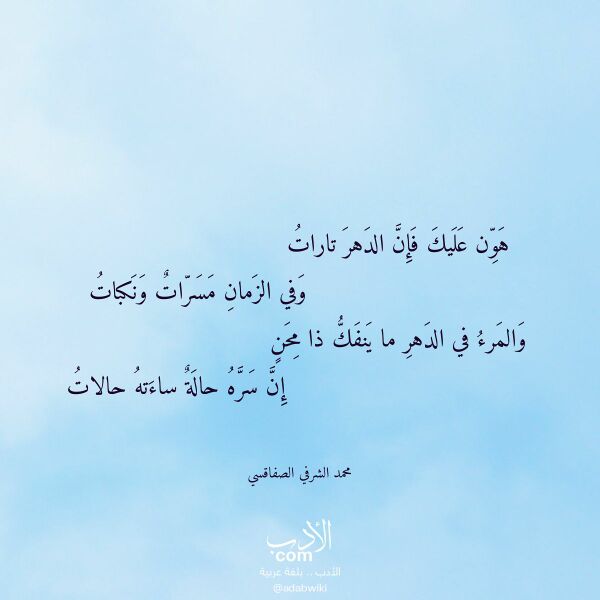 هَوِّن عَلَيكَ فَإِنَّ الدَهرَ تاراتُ
وَفي الزَمانِ مَسَرّاتٌ وَنَكباتُ
وَالمَرءُ في الدَهرِ ما يَنفَكُّ ذا مِحَنٍ
إِنَّ سَرَّهُ حالَةٌ ساءَتهُ حالاتُ
محمد الشرفي الصفاقسي
الأدب
.com
الأدب .. بلغة عربية
@adabwiki